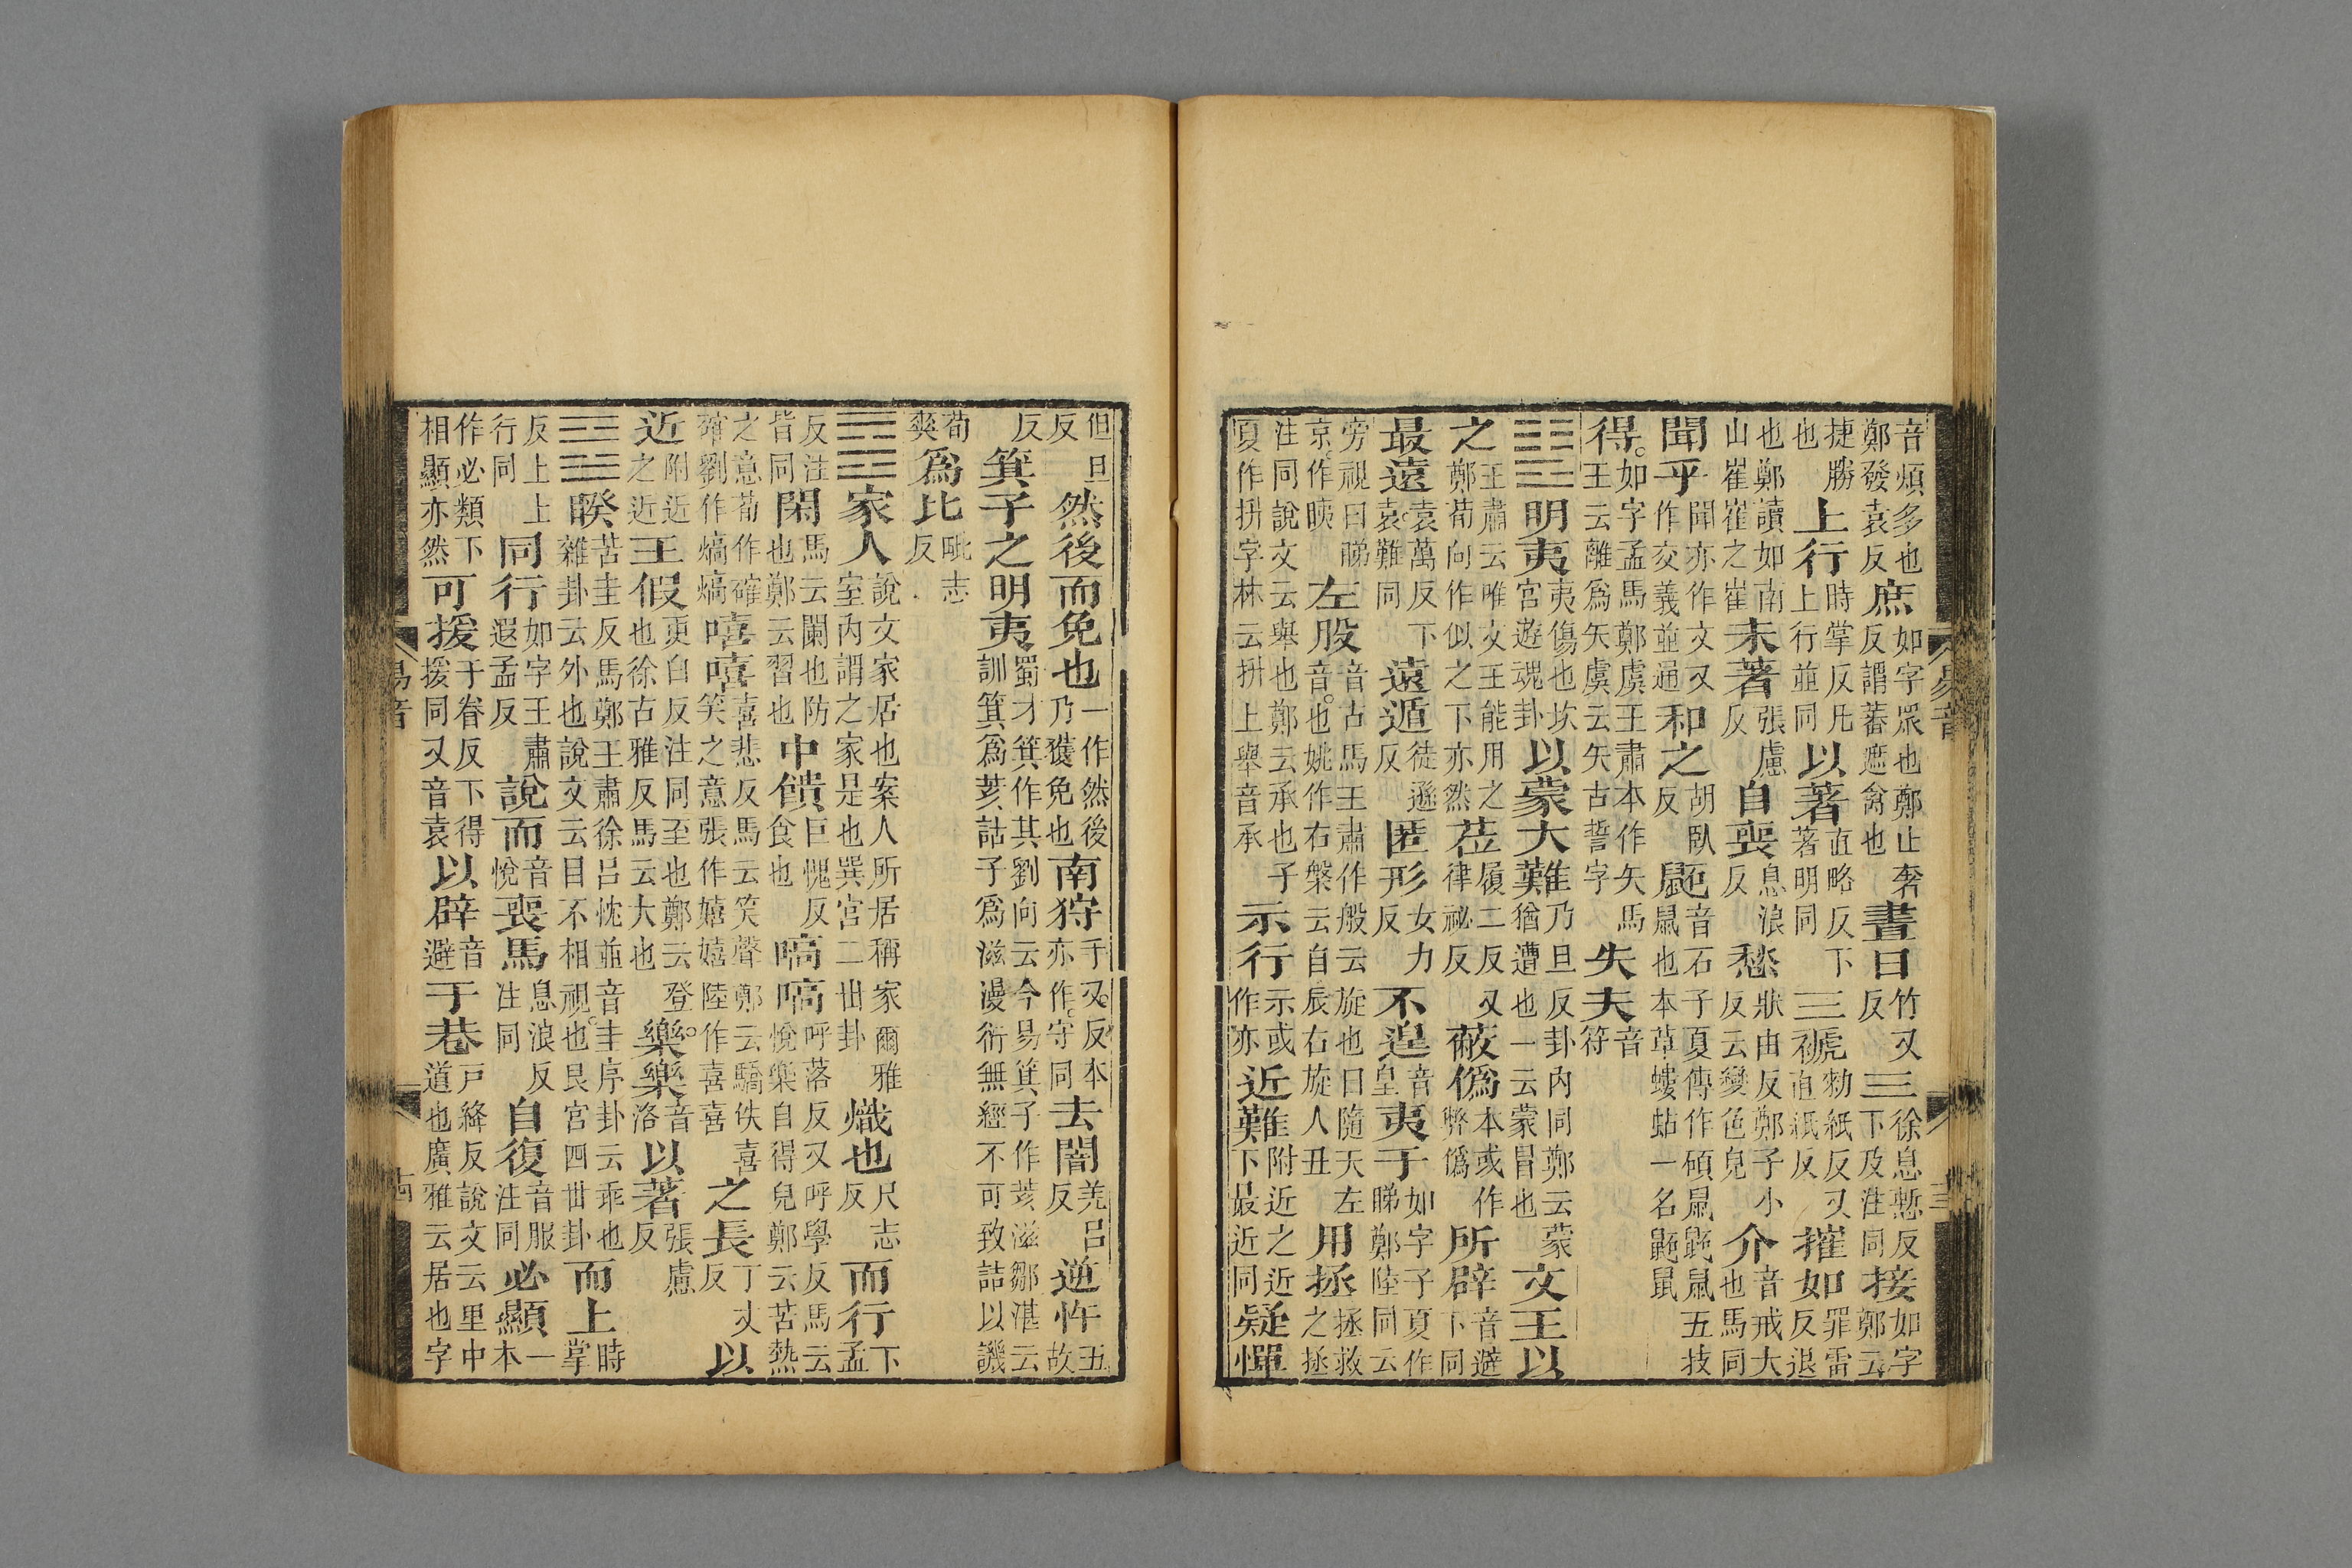 音煩多也鄭發袁反庶如字眾也鄭止奢反謂蕃遮禽也晝日竹又反三徐息慙反下及注同接如字鄭云
捷勝也上行時掌反凡上行並同以著直略反下著明同三褫勑紙反又直紙反摧如罪雷反退
也鄭讀如南山崔崔之崔未著張慮反自喪息浪反愁狀由反鄭子小反云變色皃介音戒大也馬同
聞乎聞亦作文又作交義並通和之胡臥反鼫音石子夏傳作碩鼠鼫鼠五技鼠也本草螻蛄一名鼫鼠
得如字孟馬鄭虞王肅本作矢馬王云離爲矢虞云矢古誓字失夫音符
䷣明夷夷傷也坎宮遊魂卦以蒙大難乃旦反卦內同鄭云蒙猶遭也一云蒙冒也文王以
之王肅云唯文王能用之鄭荀向作似之下亦然莅履二反又律祕反蔽僞本或作弊僞所辟音避下同
最遠袁萬反下袁難同遠遁徒遜反匿形女力反不遑音皇夷于如字子夏作睇鄭陸同云
旁視曰睇京作眱左股音古馬王肅作般云旋也日隨天左音也姚作右槃云自辰右旋人丑用拯拯救之拯
注同說文云舉也鄭云承也子夏作抍字林云抍上舉音承示行示或作亦近難附近之近下最近同疑憚
但旦反然後而免也一作然後乃獲免也南狩手又反本亦作守同去闇羌呂反逆忤五故
反箕子之明夷蜀才箕作其劉向云今易箕子作荄滋鄒湛云訓箕爲荄詁子爲滋漫衍無經不可致詰以譏
荀爽爲比毗志反
䷤家人說文家居也案人所居稱家爾雅室內謂之家是也巽宮二世卦熾也尺志反而行下孟
反注皆同閑馬云闌也防也鄭云習也中饋巨愧反食也嗃嗃呼落反又呼學反馬云悅樂自得皃鄭云苦熱
之意荀作確確劉作熇熇嘻嘻喜悲反馬云笑聲鄭云驕佚喜笑之意張作嬉嬉陸作喜喜之長丁丈反以
近附近之近王假更白反注同至也鄭云登也徐古雅反馬云大也樂樂音洛以著張慮反
䷥睽苦圭反馬鄭王肅徐呂忱並音圭序卦云乖也雜卦云外也說文云目不相視也艮宮四世卦而上時掌
反上上行同同行如字王肅遐孟反說而音悅喪馬息浪反注同自復音服注同必顯一本
作必類下相顯亦然可援于眷反下得援同又音袁以辟音避于巷戶絳反說文云里中道也廣雅云居也字